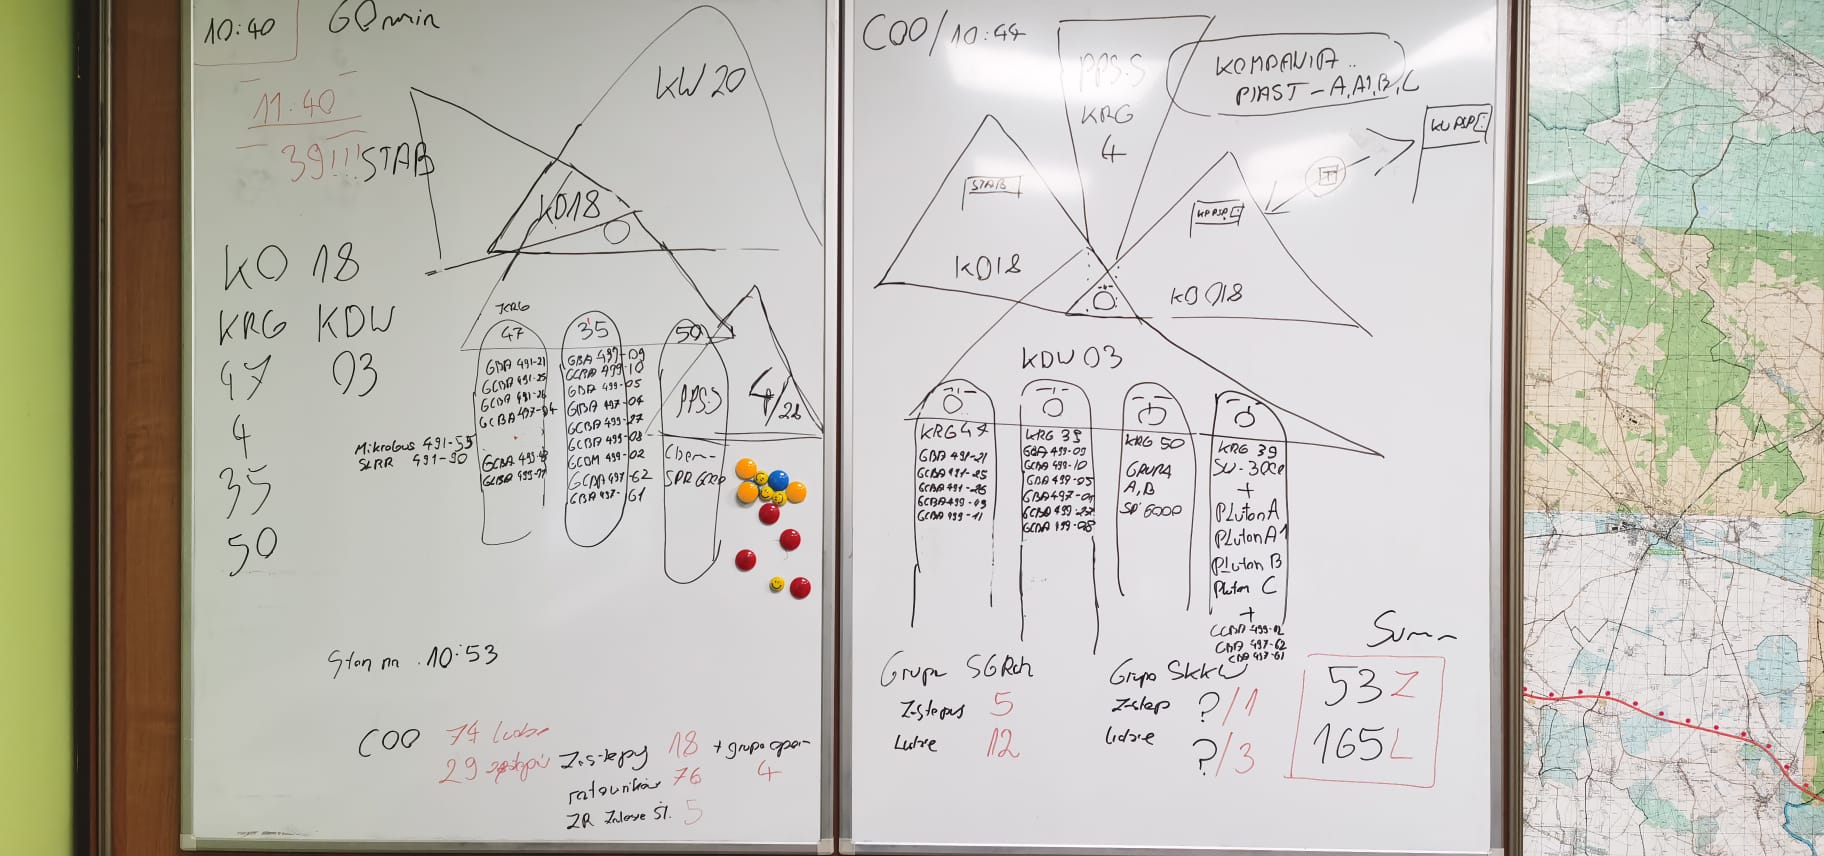 10:40 60 min
11:40
39!!! STAB
KW 20
KO18
KO 18
KRG KDW
47 03
4
35
50
KRG
47
GBA 491-21
GCBA 491-25
GCBA 491-26
GCBA 497-04
Mikrobus 491-55
SLRR 491-90
35
GBA 499-09
GCBA 499-10
GBA 499-05
GBA 497-04
GCBA 499-27
GCBA 499-08
GCDM 499-02
GCBA 497-62
GBA 497-61
50
PPS.S
Chem-
4/2b
Stan na 10:53
COO 74 ludzie
29 zastępów
Zastępy 18 + grupa oper
ratowników 76 4
ZR 5
COO/10:44
PPS.S
KRG
4
KOMPANIA
PIAST - A, A1, B, C
KW PSP
STAB
KO18
KP PSP
KO 018
KDW 03
KRG 47
GBA 491-21
GCBA 491-25
GCBA 491-26
GCBA 499-09
GCBA 499-11
KRG 35
GBA 499-09
GCBA 499-10
GBA 499-05
GBA 497-04
GCBA 499-27
GCBA 499-08
KRG 50
GRUPA
A, B
SP 6000
KRG 39
SW-3000
+
Pluton A
Pluton A1
Pluton B
Pluton C
+
GCBA 499-12
GBA 497-62
GBA 497-61
Grupa SGRch
Zastępy 5
Ludzie 12
Grupa SKKW
Zastęp ?/1
ludzie ?/3
Suma
53 Z
165 L